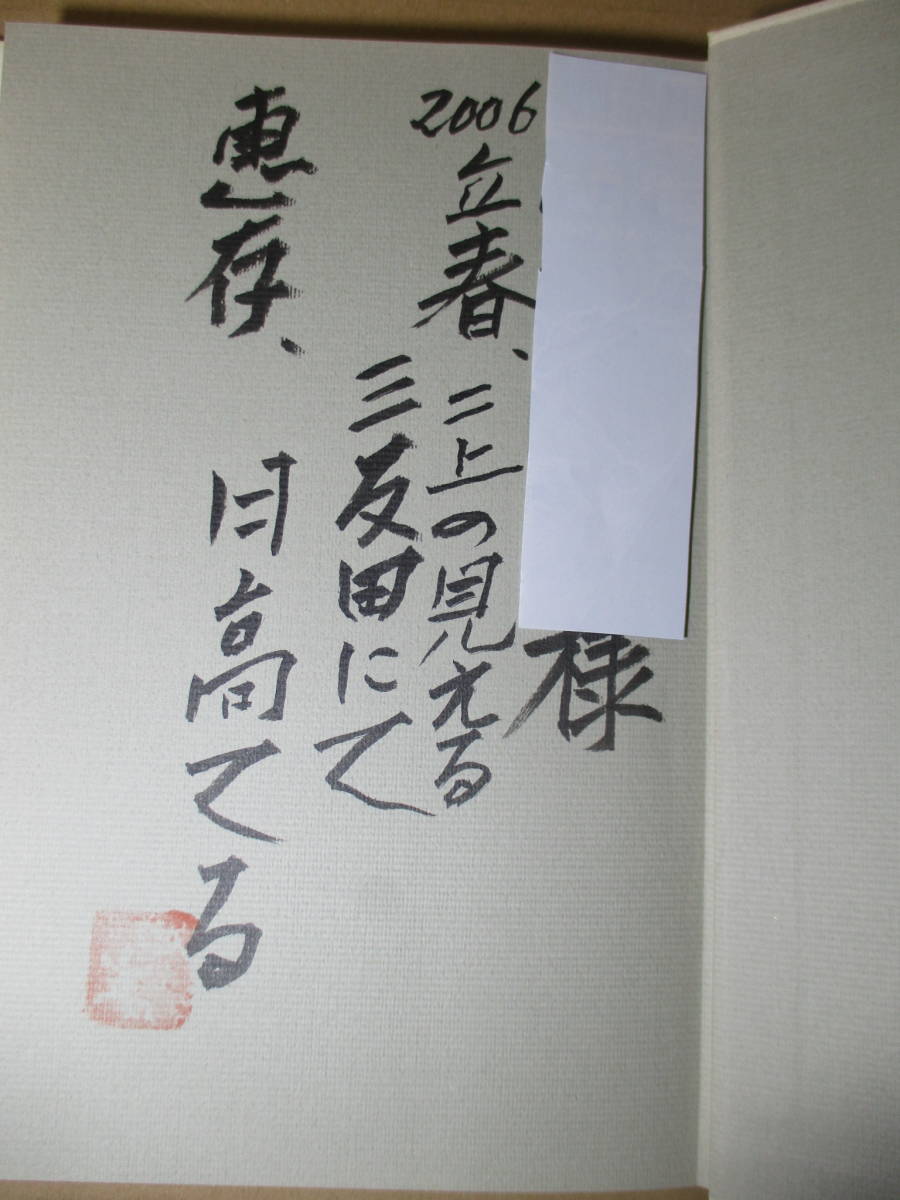 様
2006立春、二上の見える
三反田にて
恵存、 日高てる